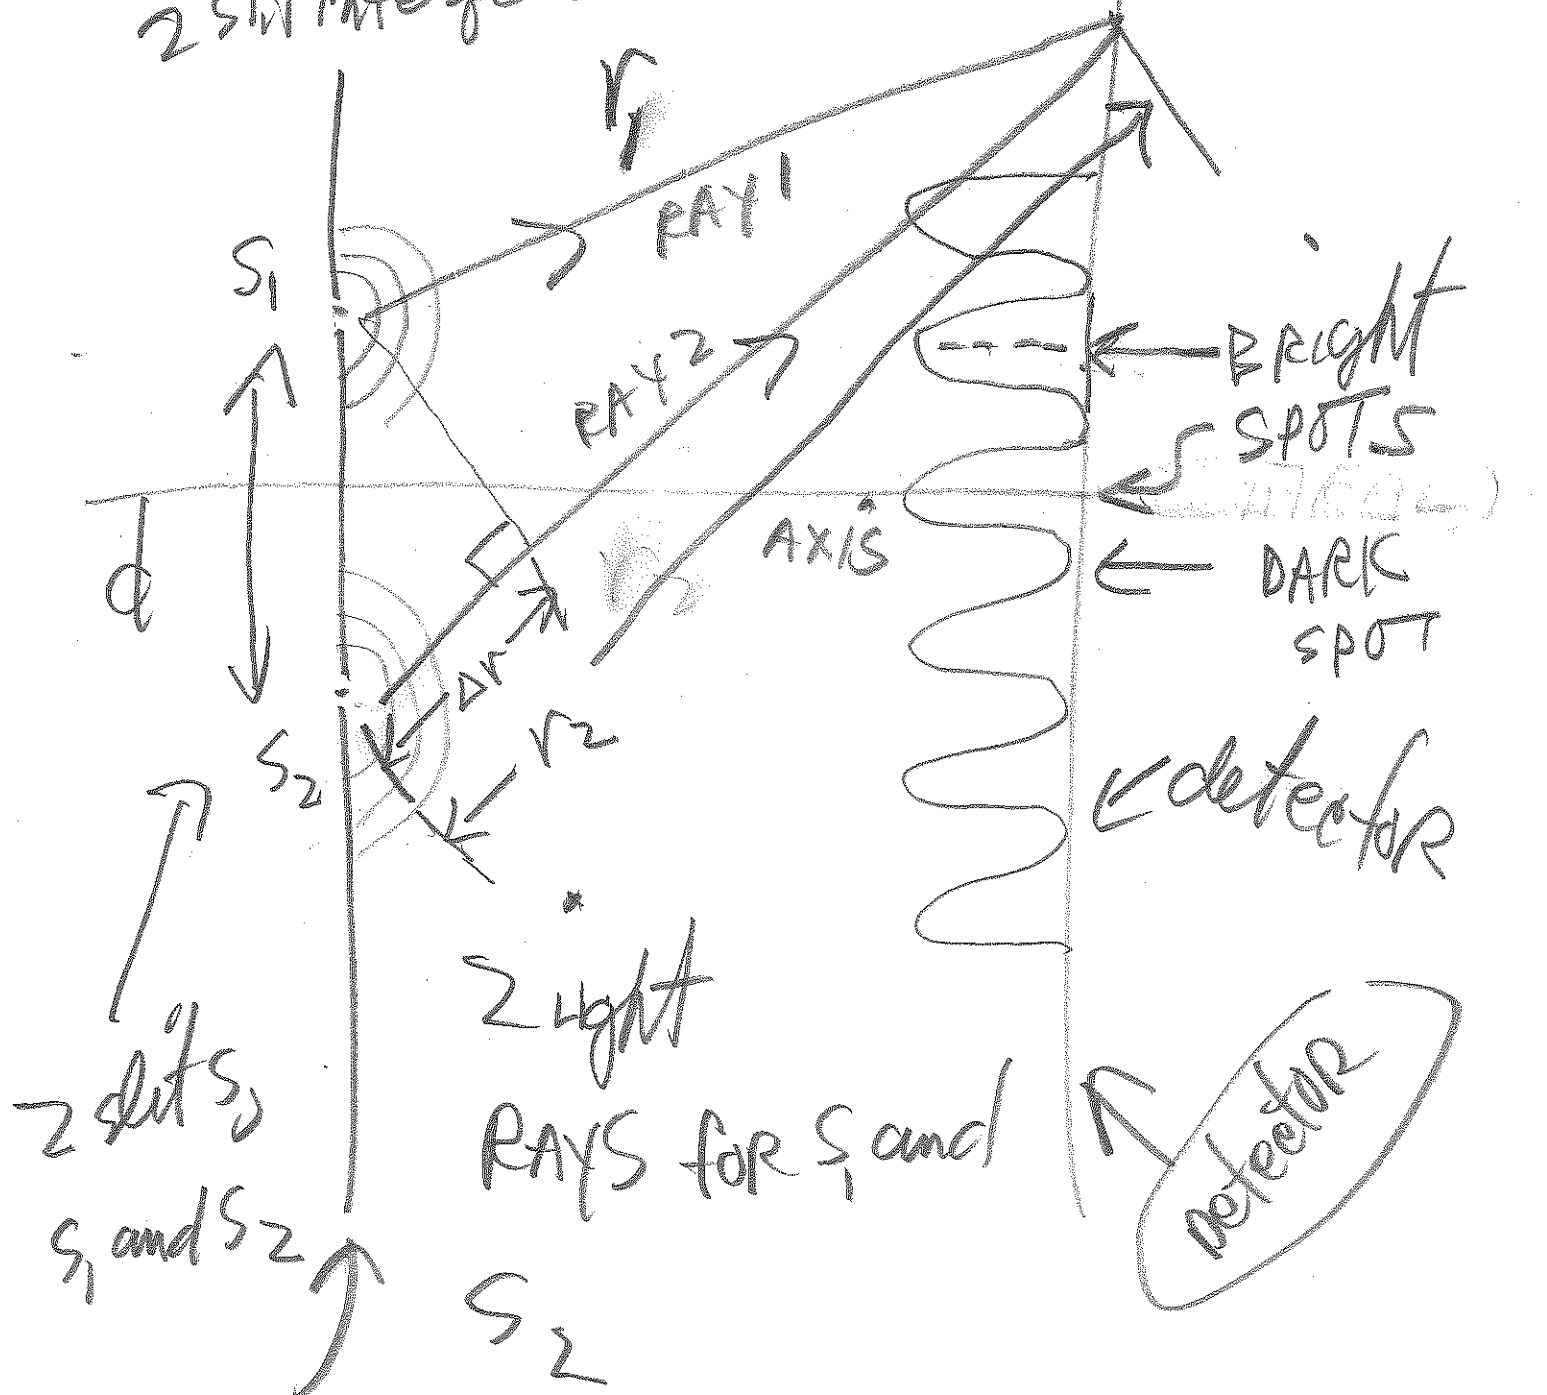 2 Slit
r1
RAY 1
S1
RAY 2
BRight
SPOTS
d
AXIS
DARK
SPOT
Δr
r2
S2
detectoR
2 Light
RAYS foR S1 and
S2
2 slits,
S1 and S2
DetectoR